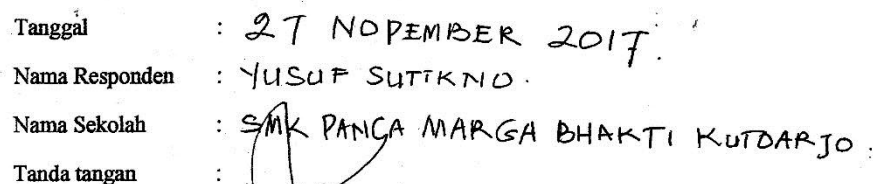 Tanggal : 27 NOPEMBER 2017.
Nama Responden : YUSUF SUTIKNO.
Nama Sekolah : SMK PANCA MARGA BHAKTI KUTOARJO.
Tanda tangan :